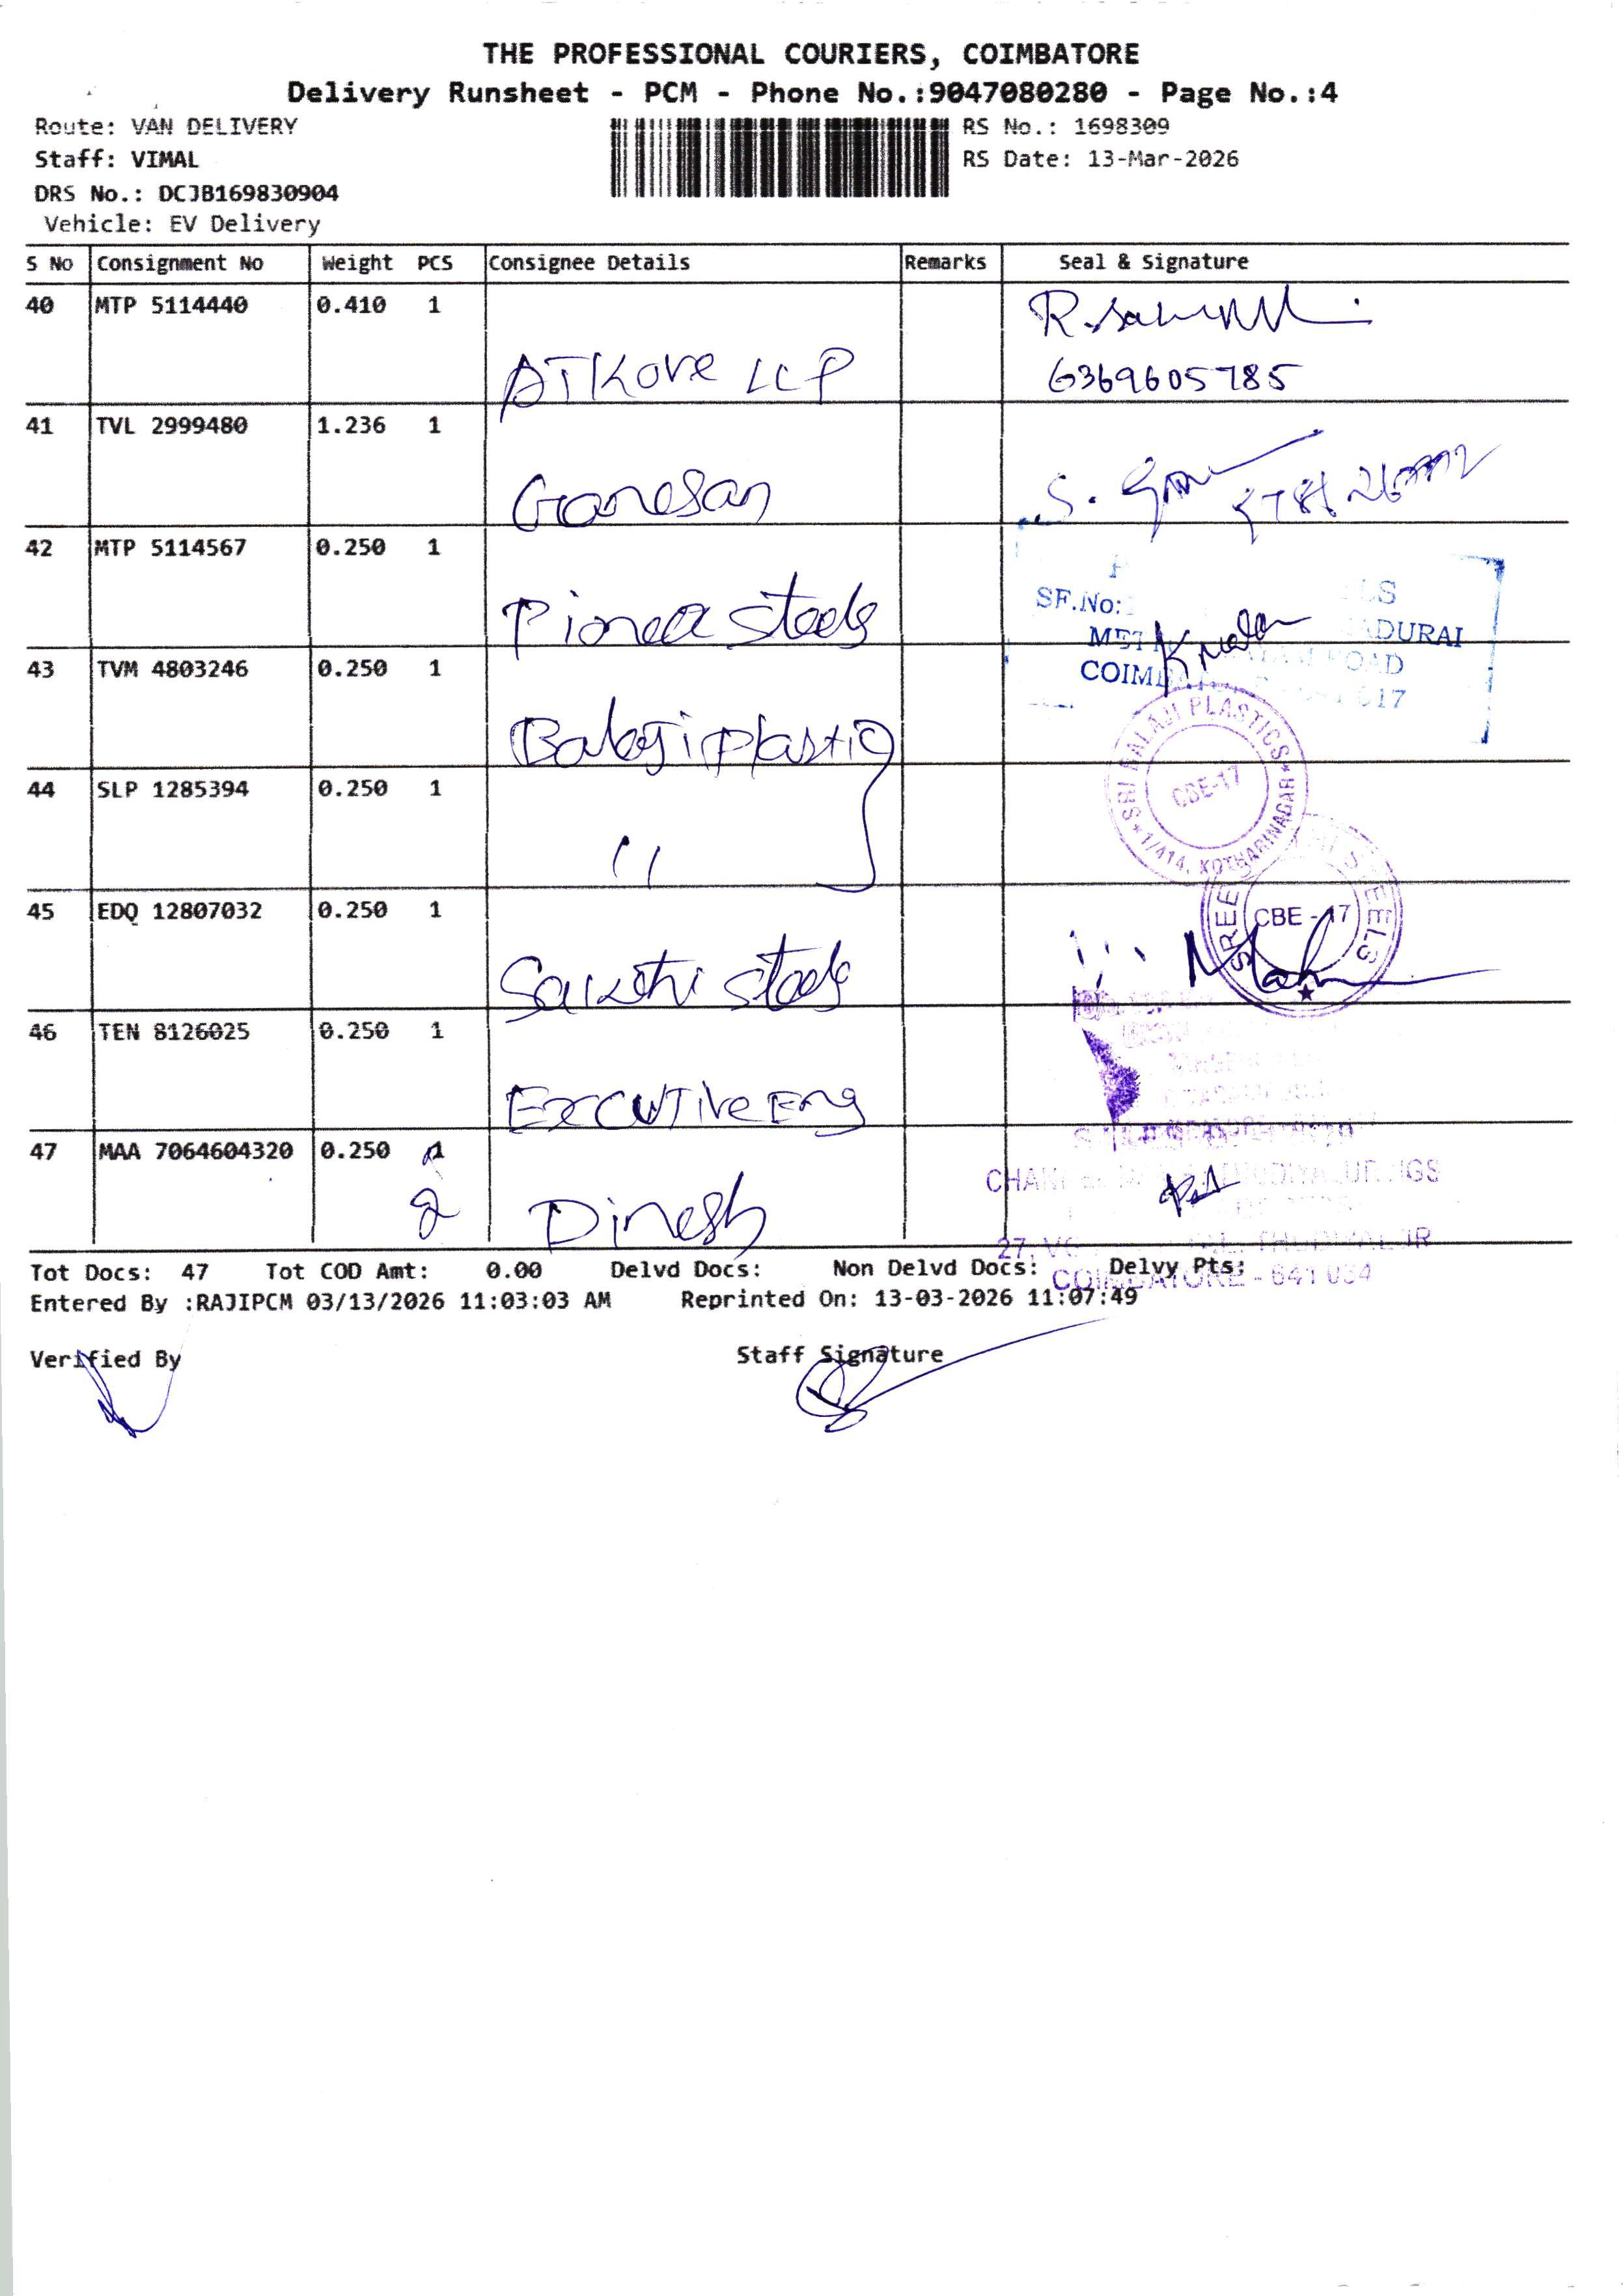 THE PROFESSIONAL COURIERS, COIMBATORE
Delivery Runsheet - PCM - Phone No.:9047080280 - Page No.:4
Route: VAN DELIVERY
RS No.: 1698309
Staff: VIMAL
RS Date: 13-Mar-2026
DRS No.: DCJB169830904
Vehicle: EV Delivery
S No Consignment No Weight PCS Consignee Details Remarks Seal & Signature
40 MTP 5114440 0.410 1
ATKore LLP 6369605785
41 TVL 2999480 1.236 1
Ganesan S.
42 MTP 5114567 0.250 1
SF.No:
Pioneer Steels
ADURAI
43 TVM 4803246 0.250 1
ROAD
Balaji plastic
SRI BALAJI PLASTICS
CBE-17
1/414, KOTHARINAGAR
44 SLP 1285394 0.250 1
"
45 EDQ 12807032 0.250 1
SREE STEELS
CBE - 17
Sakthi steels
46 TEN 8126025 0.250 1
Executive Eng
47 MAA 7064604320 0.250 1
2
Dinesh
27,
COIMBATORE - 641 034
Tot Docs: 47 Tot COD Amt: 0.00 Delvd Docs: Non Delvd Docs: Delvy Pts:
Entered By :RAJIPCM 03/13/2026 11:03:03 AM Reprinted On: 13-03-2026 11:07:49
Verified By Staff Signature